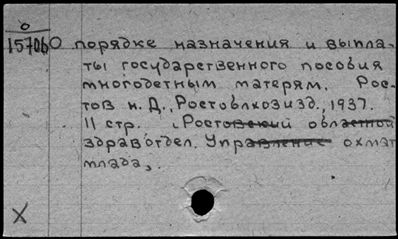 О
15706
О порядке назначения и выпла-
ты государственного пособия
многодетным матерям. Рос-
тов н. Д., Ростоблкозизд., 1937.
11 стр. (Ростовский областной
здравотдел. Управление охмат
млада,
X